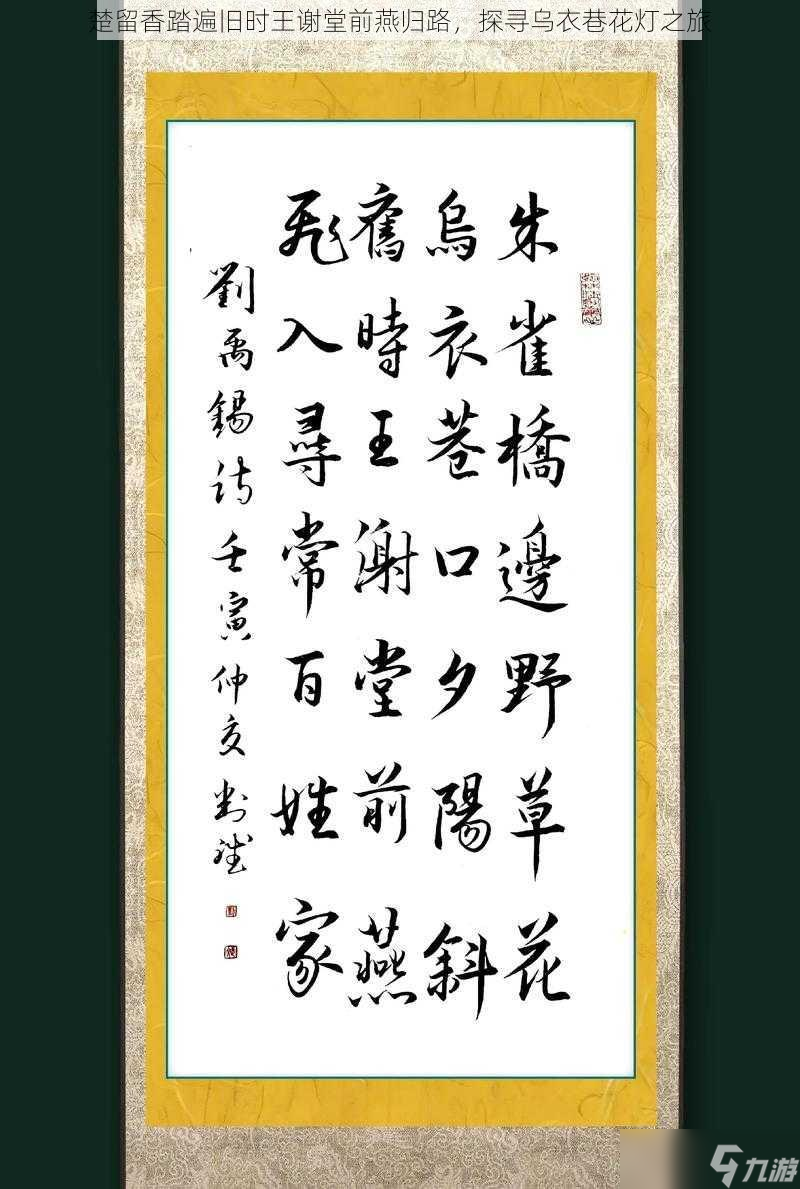 楚留香踏遍旧时王谢堂前燕归路，探寻乌衣巷花灯之旅
朱雀橋邊野草花
烏衣巷口夕陽斜
舊時王謝堂前燕
飛入尋常百姓家
劉禹錫詩壬寅仲夏劉斌
九游